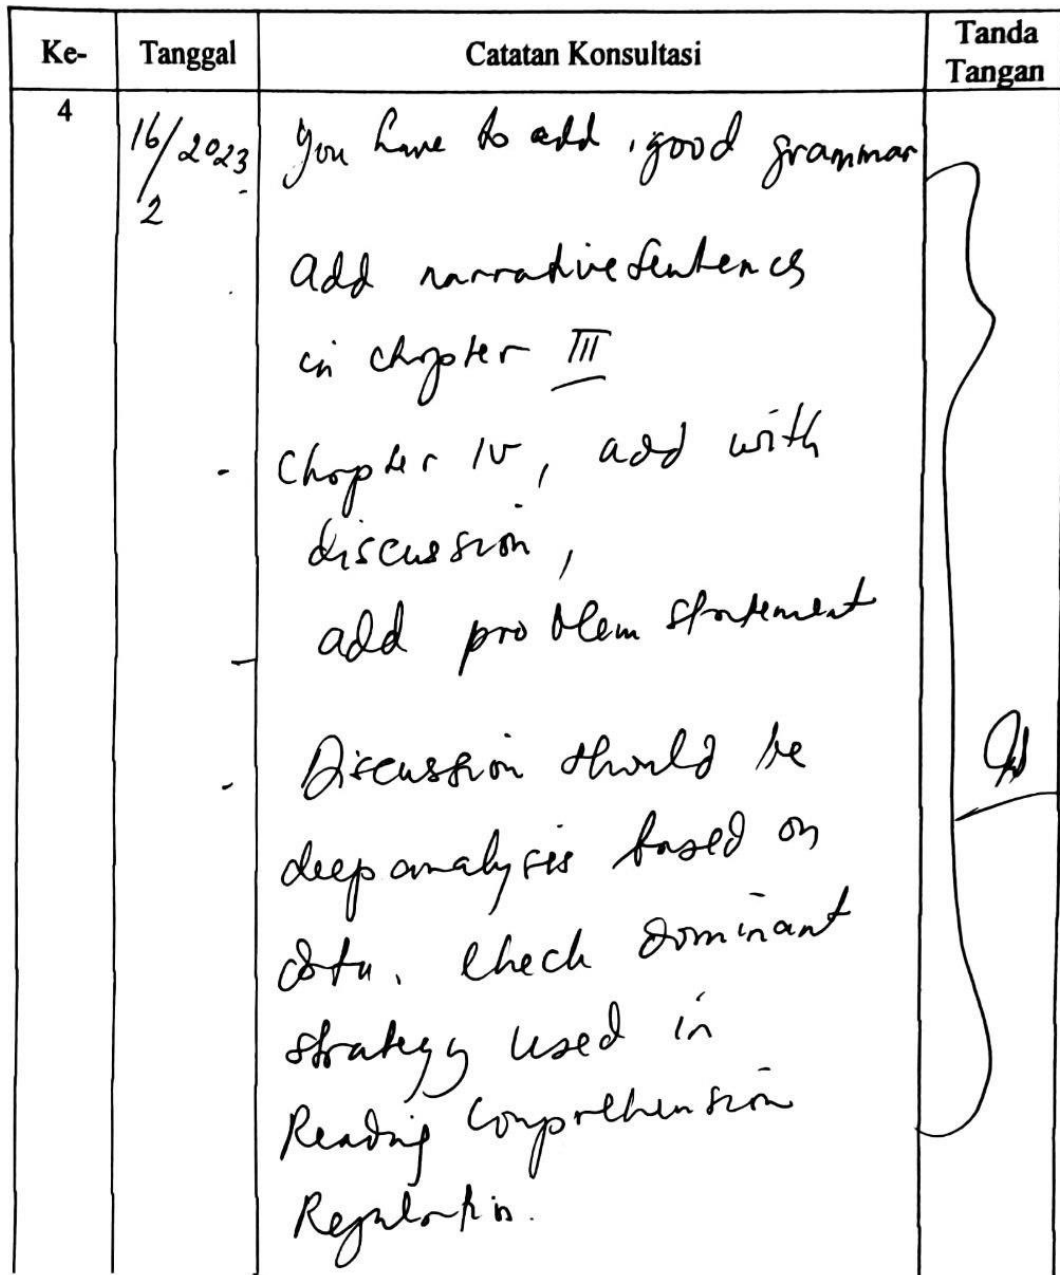 Ke- Tanggal Catatan Konsultasi Tanda Tangan
4 16/2 2023 You have to add, good grammar
Add narrative sentences
in chapter III
- Chapter IV, add with
discussion,
- add problem statement
- Discussion should be
deep analysis based on
data. Check dominant
strategy used in
Reading Comprehension